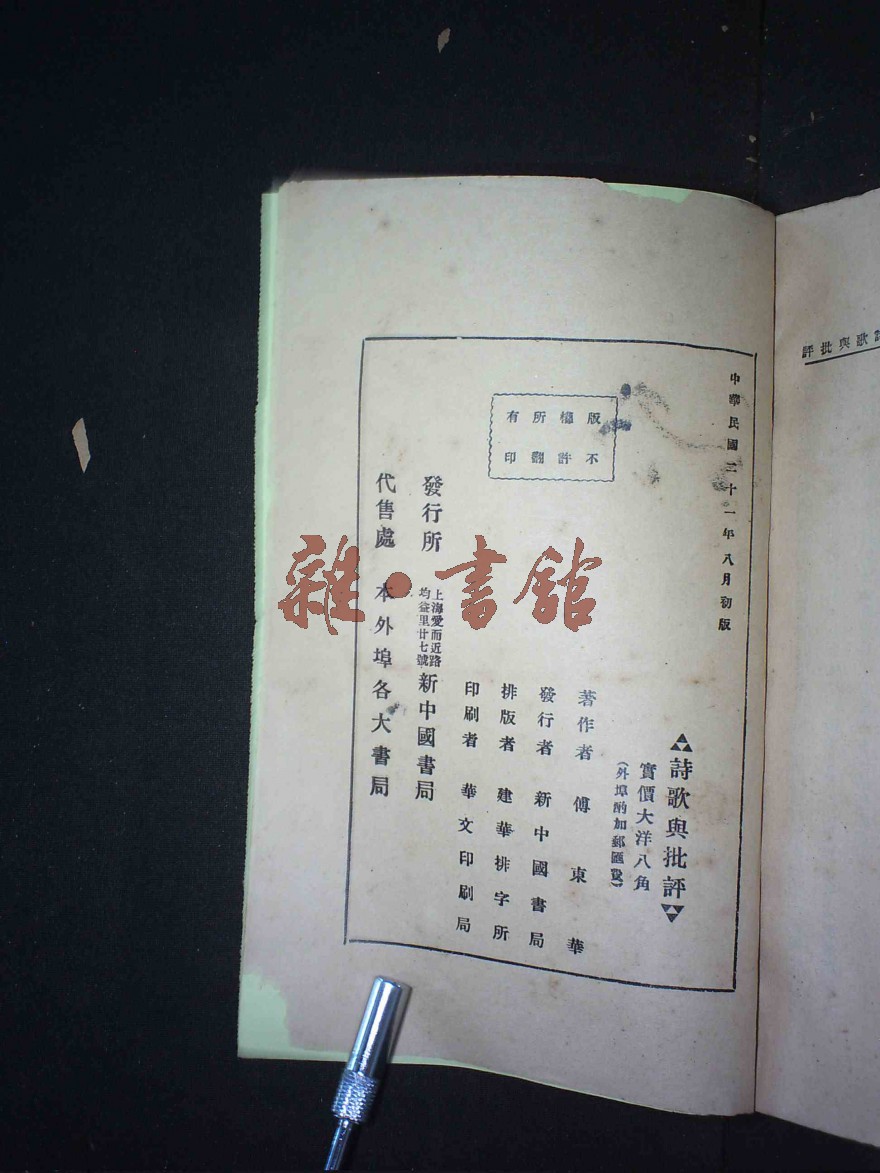 詩歌與批評
中華民國二十一年八月初版
詩歌與批評
實價大洋八角
(外埠酌加郵匯費)
版權所有
不許翻印
著作者 傅東華
發行者 新中國書局
排版者 建華排字所
印刷者 華文印刷局
發行所 上海愛而近路均益里廿七號 新中國書局
代售處 本外埠各大書局
雜·書館